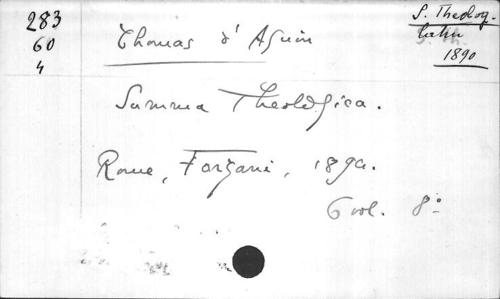 283
60
4
S. Theolog.
1890
Thomas d'Aquin
Summa Theologica.
Rome, Forzani, 1894.
6 vol. 8°